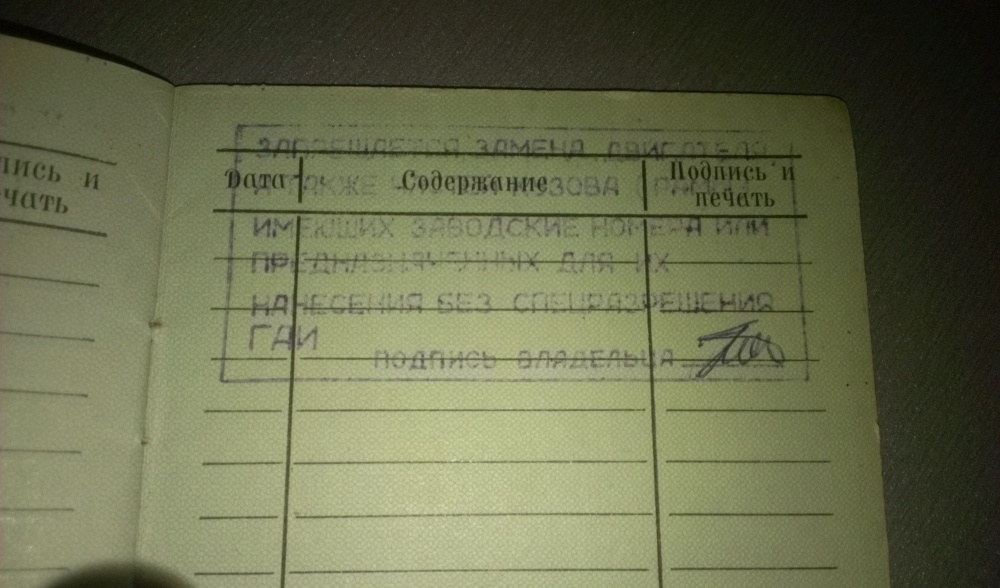 пись и
чать
ЗАПРЕЩАЕТСЯ ЗАМЕНА ДВИГАТЕЛЯ
Дата
Содержание
Подпись и
печать
А ТАКЖЕ КУЗОВА
ИМЕЮЩИХ ЗАВОДСКИЕ НОМЕРА ИЛИ
ПРЕДНАЗНАЧЕННЫХ ДЛЯ ИХ
НАНЕСЕНИЯ БЕЗ СПЕЦРАЗРЕШЕНИЯ
ГАИ
ПОДПИСЬ ВЛАДЕЛЬЦА